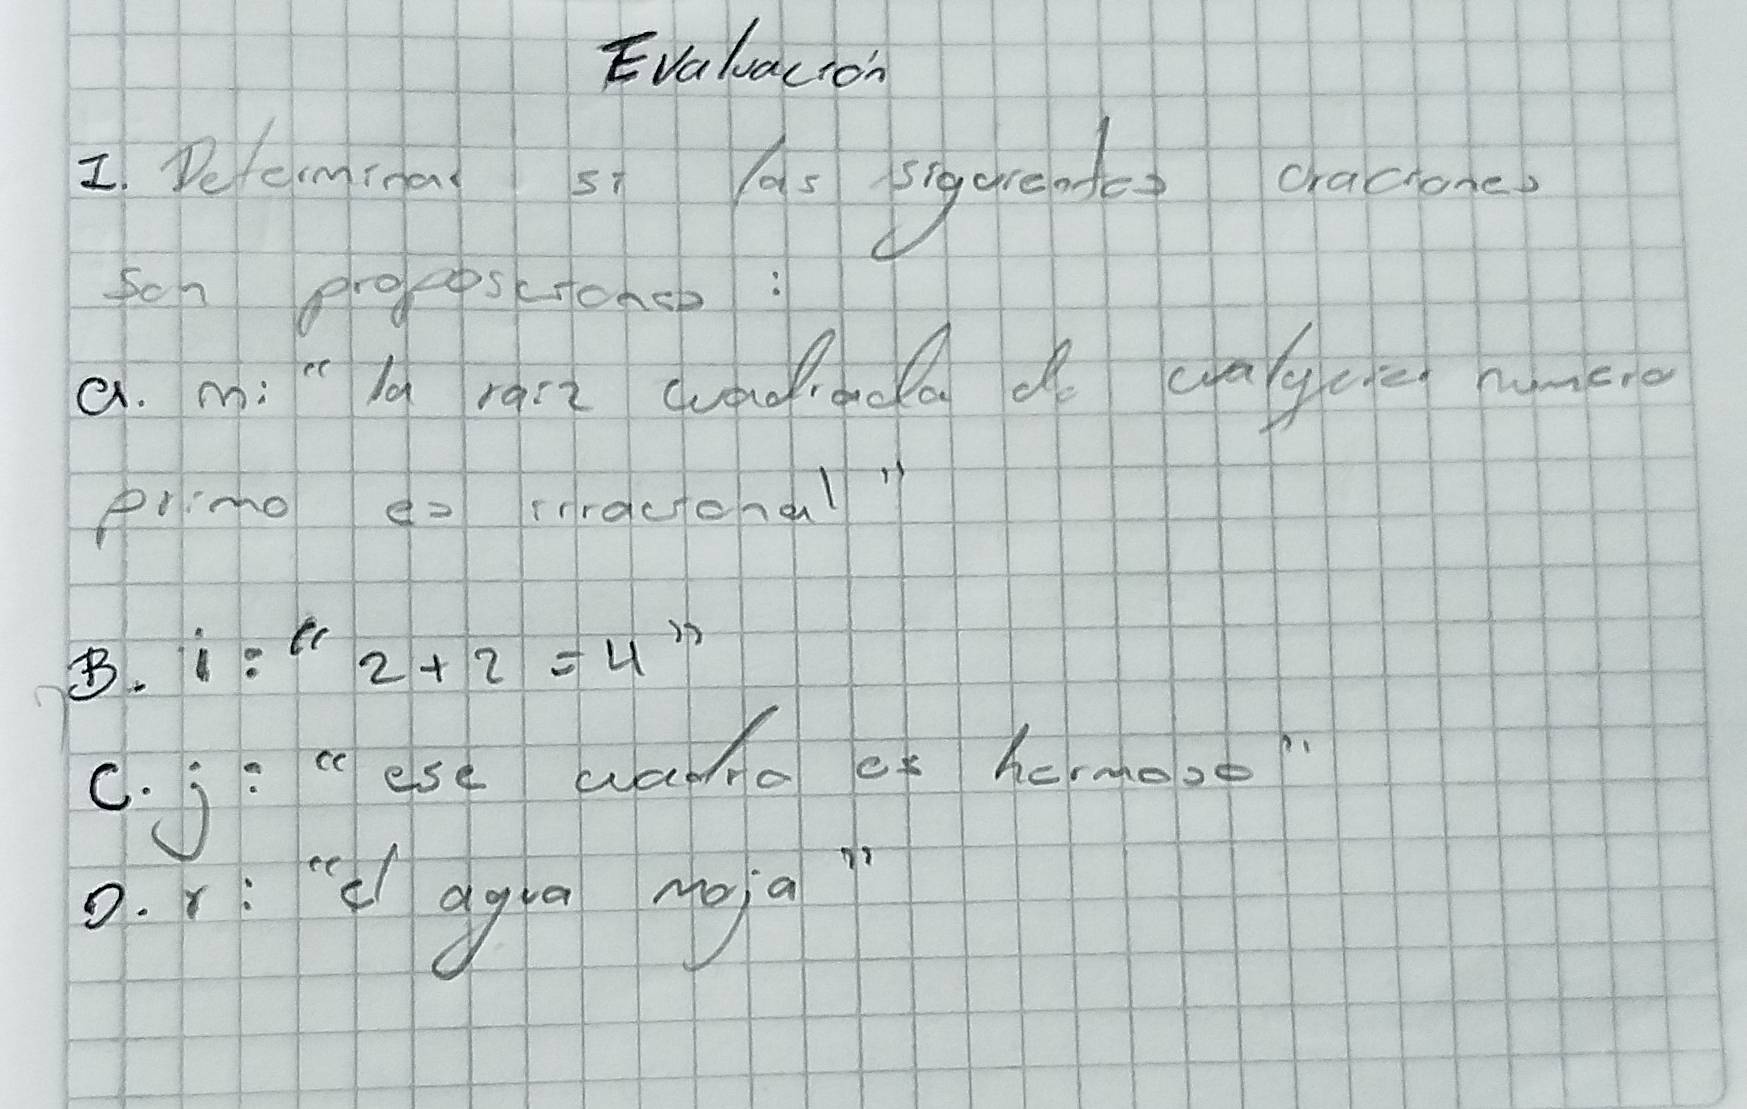 Evaluación
I. Determinar si las siguientes oraciones
son proposiciones :
a. m: " la raiz cuadrada de cualquier numero
primo es irracional "
B. i : " 2 + 2 = 4 "
C. j : " ese cuadro es hermoso "
D. r : " el agua moja "